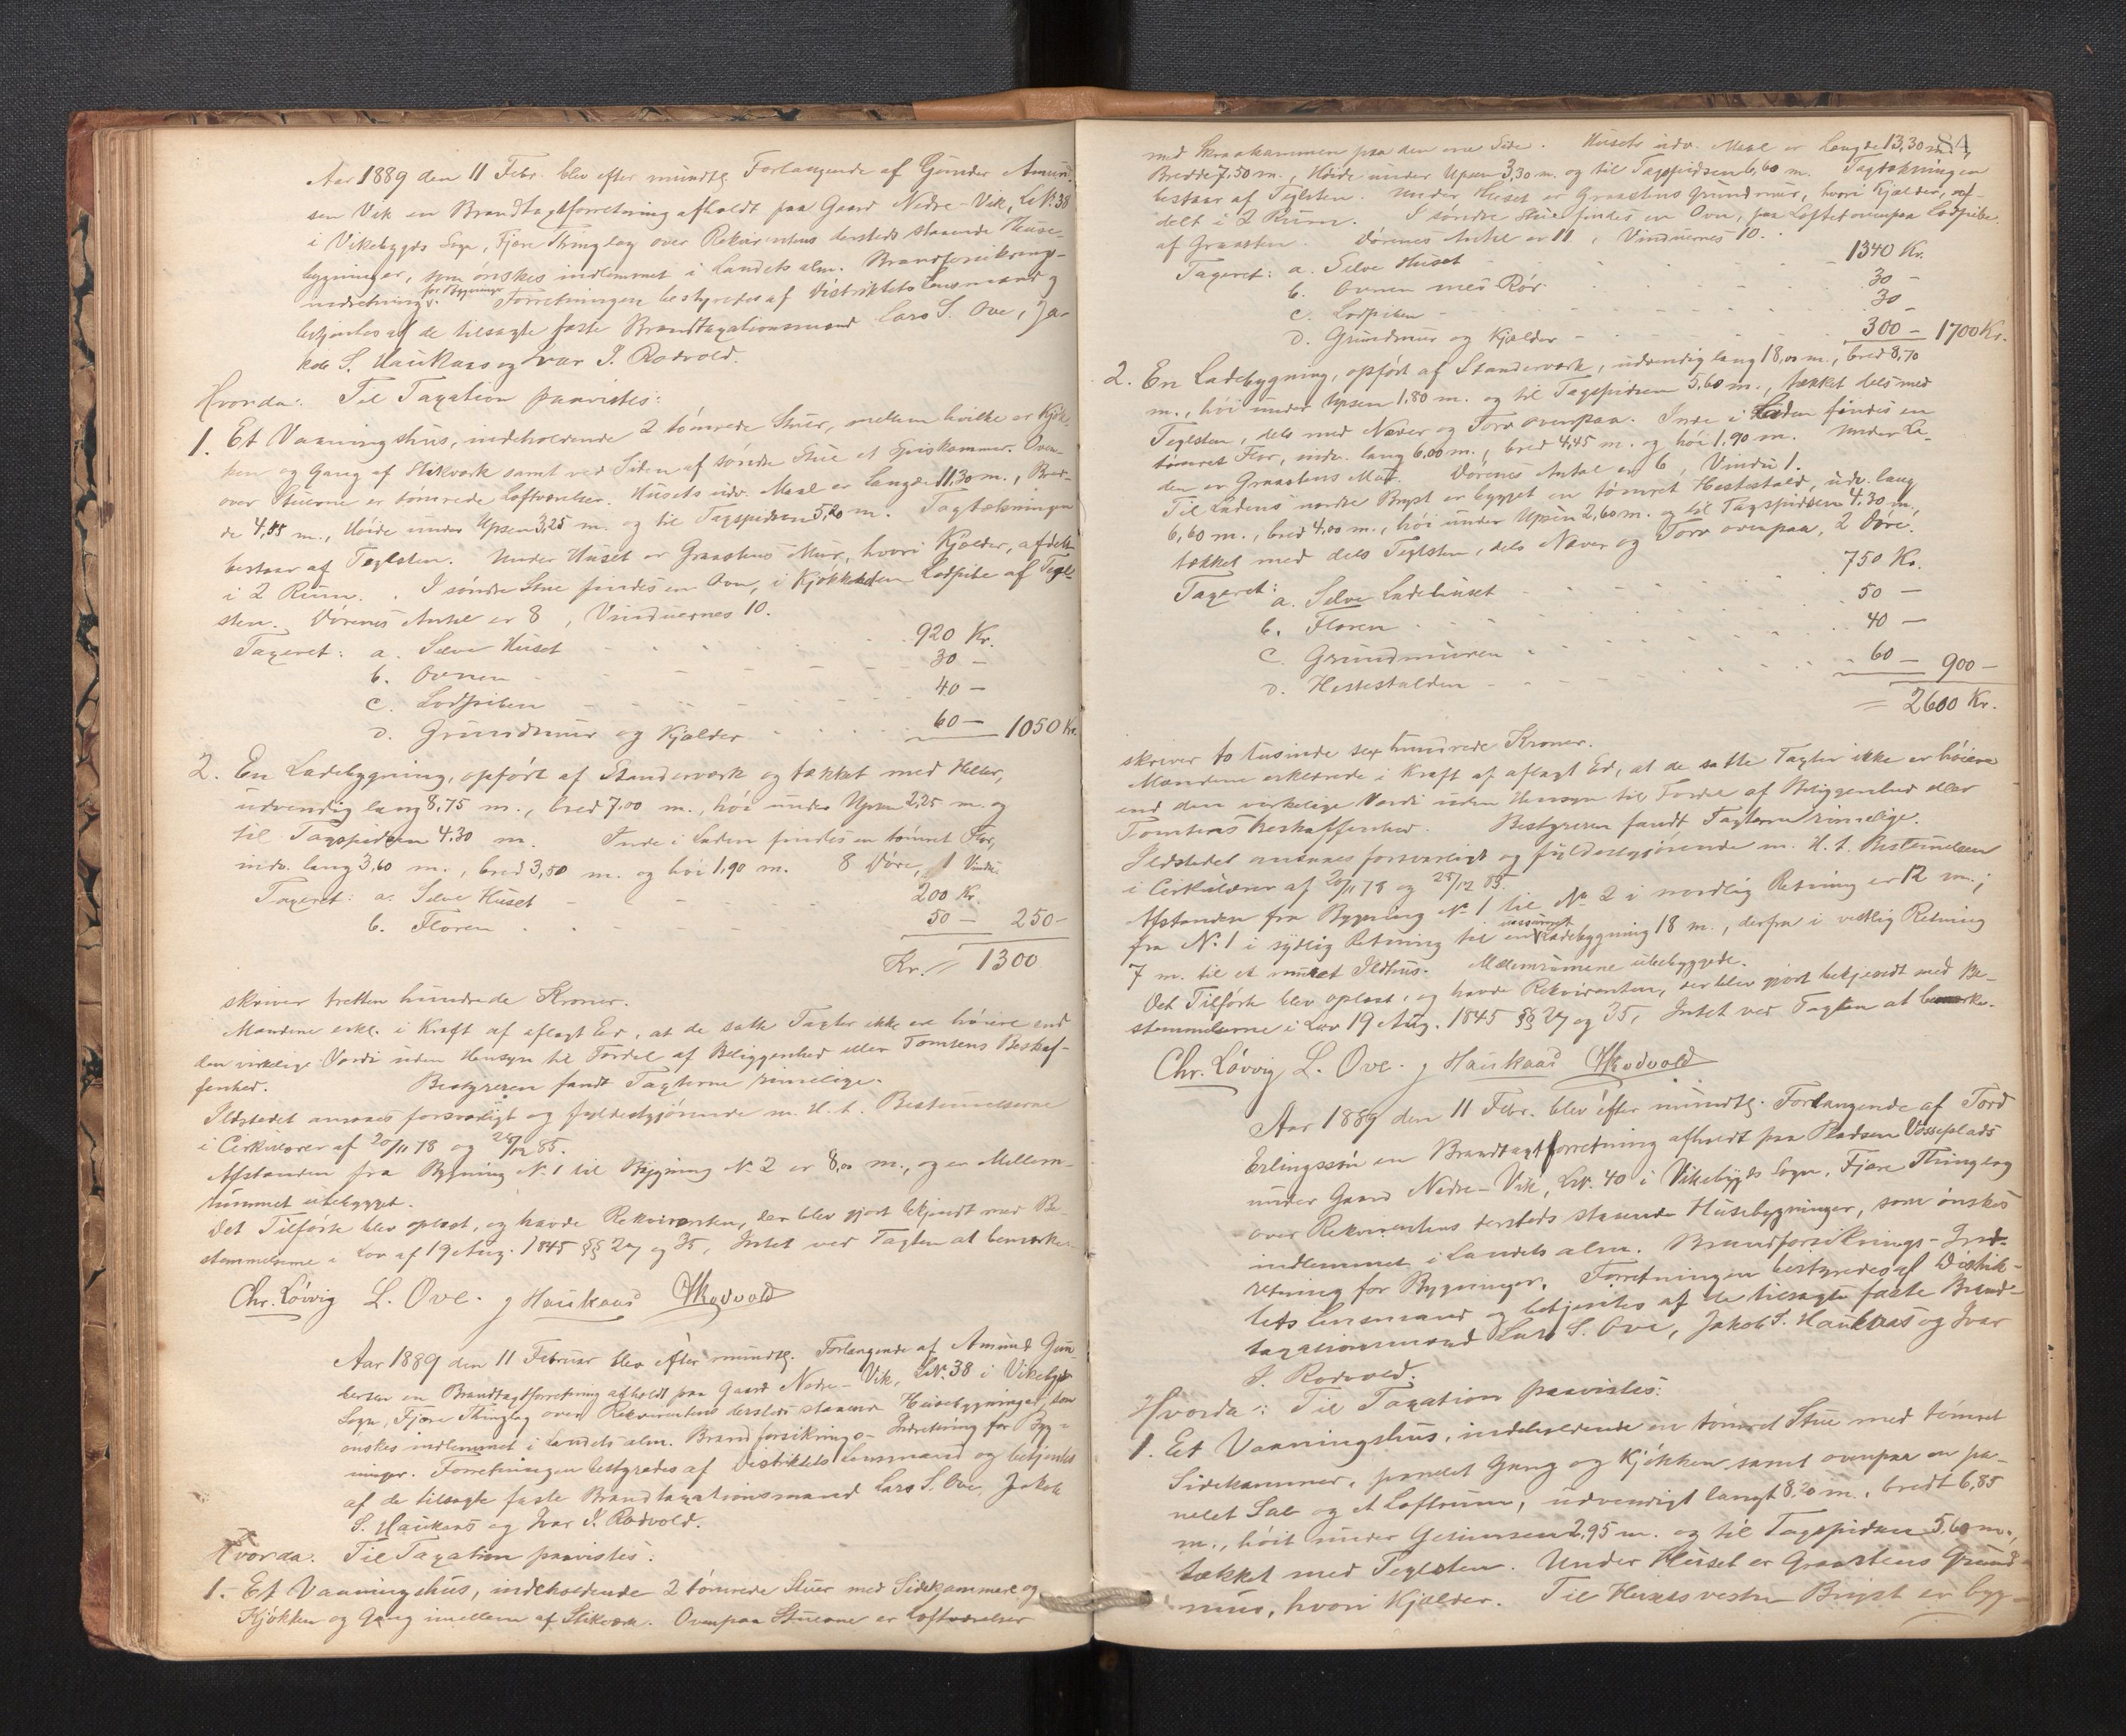 Aar 1889 den 11 Febr. blev efter mundtlg Forlangende af Gunder Amund-
sen Vik en Brandtaxtforretning afholdt paa Gaard Nedre-Vik, L.N. 38
i Vikebygds Sogn, Fjære Thinglag over Rekvirentens dersteds staaende Huse-
bygninger, som ønskes indlemmet i Landets alm. Brandforsikrings-
indretning for Bygninger. Forretningen bestyredes af Distriktets Lensmand og
betjentes af de tilsagte faste Brandtaxationsmænd Lars S. Ove, Ja-
kob S. Haukaas og Ivar I. Rødvold.
Hvorda: Til Taxation paavistes:
1. Et Vaaningshus, indeholdende 2 tømrede Stuer, mellem hvilke er Kjøk-
ken og Gang af Stikværk samt ved Siden af søndre Stue et Spiskammer. Oven-
over Stuerne er tømrede Loftværelser. Husets udv. Maal er Længde 11,30 m., Bred-
de 4,85 m., Høide under Upsen 3,25 m. og til Tagspidsen 5,20 m. Tagtækningen
bestaar af Teglsten. Under Huset er Graastens Mur, hvori Kjælder, afdelt
i 2 Rum. I søndre Stue findes en Ovn, i Kjøkkenet en Lodpibe af Tegl-
sten. Dørenes Antal er 8, Vinduernes 10.
Taxeret: a. Selve Huset 920 Kr.
b. Ovnen 30 —
c. Lodpiben 40 —
d. Grundmur og Kjælder 60 — 1050 Kr.
2. En Ladebygning, opført af Standerværk og tækket med Heller,
udvendig lang 8,75 m., bred 7,00 m., høi under Upsen 2,25 m. og
til Tagspidsen 4,30 m. Inde i Laden findes en tømret Flor,
indv. lang 3,60 m., bred 3,50 m. og høi 1,90 m. 8 Døre, 1 Vindu.
Taxeret: a. Selve Huset 200 Kr.
b. Floren 50 — 250 —
Kr. = 1300
skriver tretten hundrede Kroner.
Mændene erkl. i Kraft af aflagt Eed, at de satte Taxter ikke ere høiere end
den virkelige Værdi uden Hensyn til Fordel af Beliggenhed eller Tomtens Beskaf-
fenhed. Bestyreren fandt Taxterne rimelige.
Ildstedet ansaaes forsvarligt og fyldestgjørende m. H. t. Bestemmelserne
i Cirkulærer af 20/11 78 og 28/12 85.
Afstanden fra Bygning N. 1 til Bygning N. 2 er 8,00 m., og er Mellem-
rummet ubebygget.
Det Tilførte blev oplæst, og havde Rekvirenten, der blev gjort bekjendt med Be-
stemmelserne i Lov af 19 Aug. 1845 §§ 27 og 35, Intet ved Taxten at bemærke.
Chr. Løvvig L. Ove. J Haukaas IIRødvold
Aar 1889 den 11 Februar blev efter mundtlg. Forlangende af Amund Gun-
dersen en Brandtaxtforretning afholdt paa Gaard Nedre-Vik, LN. 38 i Vikebygds
Sogn, Fjære Thinglag over Rekvirentens dersteds staaende Husebygninger, som
ønskes indlemmet i Landets alm. Brandforsikrings-Indretning for Byg-
ninger. Forretningen bestyredes af Distriktets Lensmand og betjentes
af de tilsagte faste Brandtaxationsmænd Lars S. Ove, Jakob
S. Haukaas og Ivar I. Rødvold.
Hvorda: Til Taxation paavistes:
1. Et Vaaningshus, indeholdende 2 tømrede Stuer med Sidekammere og
Kjøkken og Gang imellem af Stikværk. Ovenpaa Stuerne er Loftværelser
84
med Skraakammer paa den ene Side. Husets udv. Maal er Længde 13,30 m.,
Bredde 7,50 m., Høide under Upsen 3,30 m. og til Tagspidsen 6,60 m. Tagtækningen
bestaar af Teglsten. Under Huset er Graastens Grundmur, hvori Kjælder, af-
delt i 2 Rum. I søndre Stue findes en Ovn, paa Loftet ovenpaa Lodpibe
af Graasten. Dørenes Antal er 11, Vinduernes 10.
Taxeret: a. Selve Huset 1340 Kr.
b. Ovnen med Rør 30 —
c. Lodpiben 30 —
d. Grundmur og Kjælder 300 — 1700 Kr.
2. En Ladebygning, opført af Standerværk, udvendig lang 18,00 m., bred 8,70
m., høi under Upsen 1,80 m. og til Tagspidsen 5,60 m., tækket dels med
Teglsten, dels med Næver og Torv ovenpaa. Inde i Laden findes en
tømret Flor, indv. lang 6,00 m., bred 4,45 m. og høi 1,90 m. Under La-
den er Graastens Mur. Dørenes Antal er 6, Vindu 1.
Til Ladens nordre Bryst er bygget en tømret Hestestald, udv. lang
6,60 m., bred 4,00 m., høi under Upsen 2,60 m. og til Tagspidsen 4,30 m.,
tækket med dels Teglsten, dels Næver og Torv ovenpaa, 2 Døre.
Taxeret: a. Selve Ladehuset 750 Kr.
b. Floren 50 —
c. Grundmuren 40 —
d. Hestestalden 60 — 900 —
= 2600 Kr.
skriver to tusinde sex hundrede Kroner.
Mændene erklærede i Kraft af aflagt Ed, at de satte Taxter ikke er høiere
end den virkelige Værdi uden Hensyn til Fordel af Beliggenhed eller
Tomtens Beskaffenhed. Bestyreren fandt Taxterne rimelige.
Ildstedet ansaaes forsvarligt og fyldestgjørende m. H. t. Bestemmelsen
i Cirkulærer af 20/11 78 og 28/12 85.
Afstanden fra Bygning N. 1 til N. 2 i nordlig Retning er 12 m.;
fra N. 1 i sydlig Retning til en uassureret Ladebygning 18 m., derfra i vestlig Retning
7 m. til et muret Ildhus. Mellemrumene ubebyggede.
Det Tilførte blev oplæst, og havde Rekvirenten, der blev gjort bekjendt med Be-
stemmelserne i Lov 19 Aug. 1845 §§ 27 og 35, Intet ved Taxten at bemærke.
Chr. Løvvig L. Ove. J Haukaas IIRødvold
Aar 1889 den 11 Febr. blev efter mundtlg. Forlangende af Tord
Erlingssøn en Brandtaxtforretning afholdt paa Pladsen Vasseplads
under Gaard Nedre-Vik, LN. 40 i Vikebygds Sogn, Fjære Thinglag
over Rekvirentens dersteds staaende Husebygninger, som ønskes
indlemmet i Landets alm. Brandforsikrings-Ind-
retning for Bygninger. Forretningen bestyredes af Distrik-
tets Lensmand og betjentes af de tilsagte faste Brand-
taxationsmænd Lars S. Ove, Jakob S. Haukaas og Ivar
I. Rødvold.
Hvorda: Til Taxation paavistes:
1. Et Vaaningshus, indeholdende en tømret Stue med tømret
Sidekammer, panelet Gang og Kjøkken samt ovenpaa en pa-
nelet Sal og et Loftrum, udvendigt langt 8,20 m., bredt 6,85
m., høit under Gesimsen 2,95 m. og til Tagspidsen 5,60 m.,
tækket med Teglsten. Under Huset er Graastens Grund-
mur, hvori Kjælder. Til Husets vestre Bryst er byg-